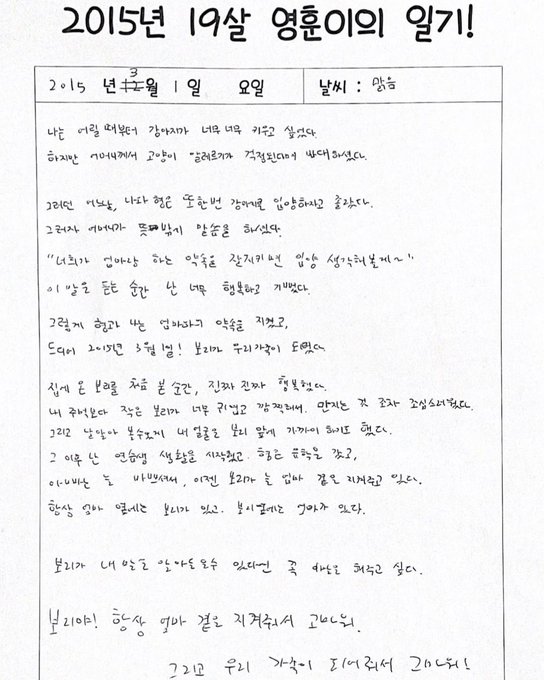 2015년 19살 영훈이의 일기!
2015 년 3월 1일 요일 날씨 : 맑음
나는 어릴 때부터 강아지가 너무너무 키우고 싶었다.
하지만 어머니께서 고양이 알레르기가 걱정된다며 반대하셨다.
그러던 어느날, 나와 형은 또한번 강아지를 입양하자고 졸랐다.
그러자 어머니가 뜻밖의 말씀을 하셨다.
"너희가 엄마랑 하는 약속을 잘지키면 입양 생각해볼게~"
이 말을 듣는 순간 난 너무 행복하고 기뻤다.
그렇게 형과 나는 엄마와의 약속을 지켰고,
드디어 2015년 3월 1일! 보리가 우리가족이 되었다.
집에 온 보리를 처음 본 순간, 진짜 진짜 행복했다.
내 주먹보다 작은 보리가 너무 귀엽고 깜찍해서 만지는 것 조차 조심스러웠다.
그리고 날 알아 볼수있게 내 얼굴을 보리 앞에 가까이 하기도 했다.
그 이후 난 연습생 생활을 시작했고. 형은 유학을 갔고,
아빠는 늘 바쁘셔서, 이젠 보리가 늘 엄마 곁은 지켜주고 있다.
항상 엄마 옆에는 보리가 있고. 보리옆에는 엄마가 있다.
보리가 내 말을 알아들을수 있다면 꼭 해주고 싶다.
보리야! 항상 엄마 곁을 지켜줘서 고마워.
그리고 우리 가족이 되어줘서 고마워!